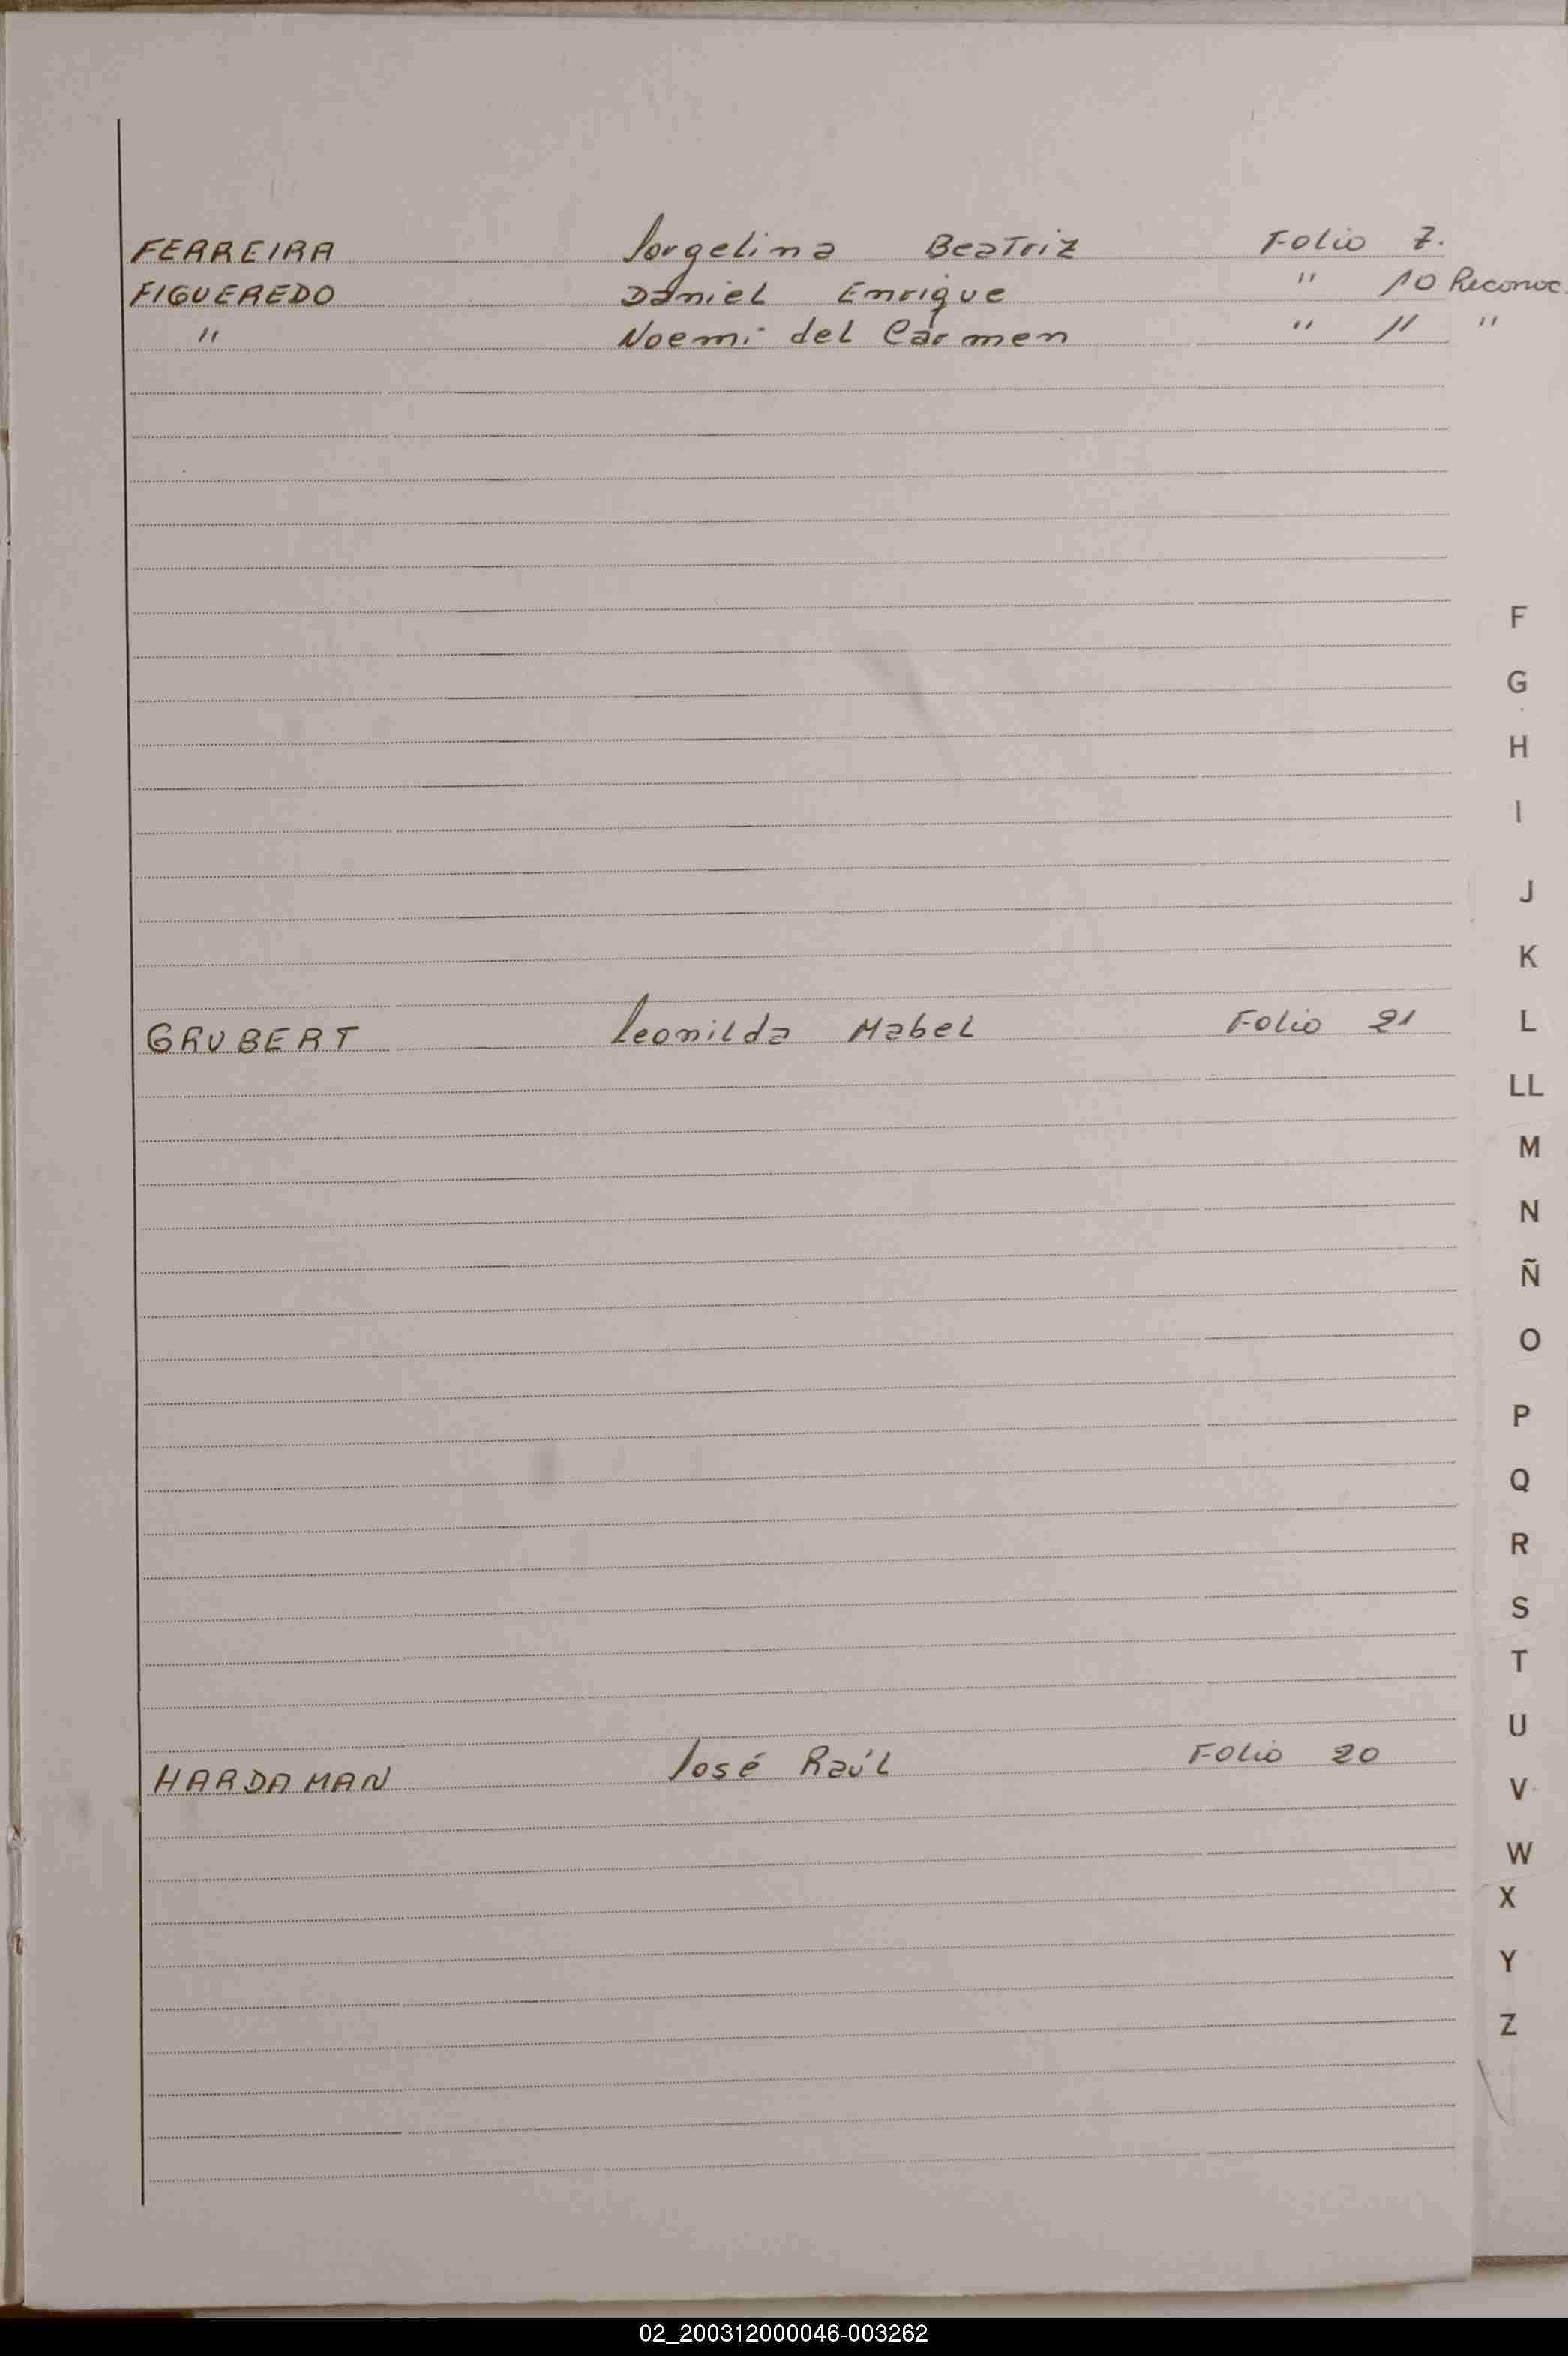 FERREIRA Jorgelina Beatriz Folio 7.
FIGUEREDO Daniel Enrique " 10 Reconoc.
" Noemí del Carmen " 11 "
F
G
H
I
J
K
GRUBERT Leonilda Mabel Folio 21
L
LL
M
N
Ñ
O
P
Q
R
S
T
U
HARDAMAN José Raúl Folio 20
V
W
X
Y
Z
02_200312000046-003262